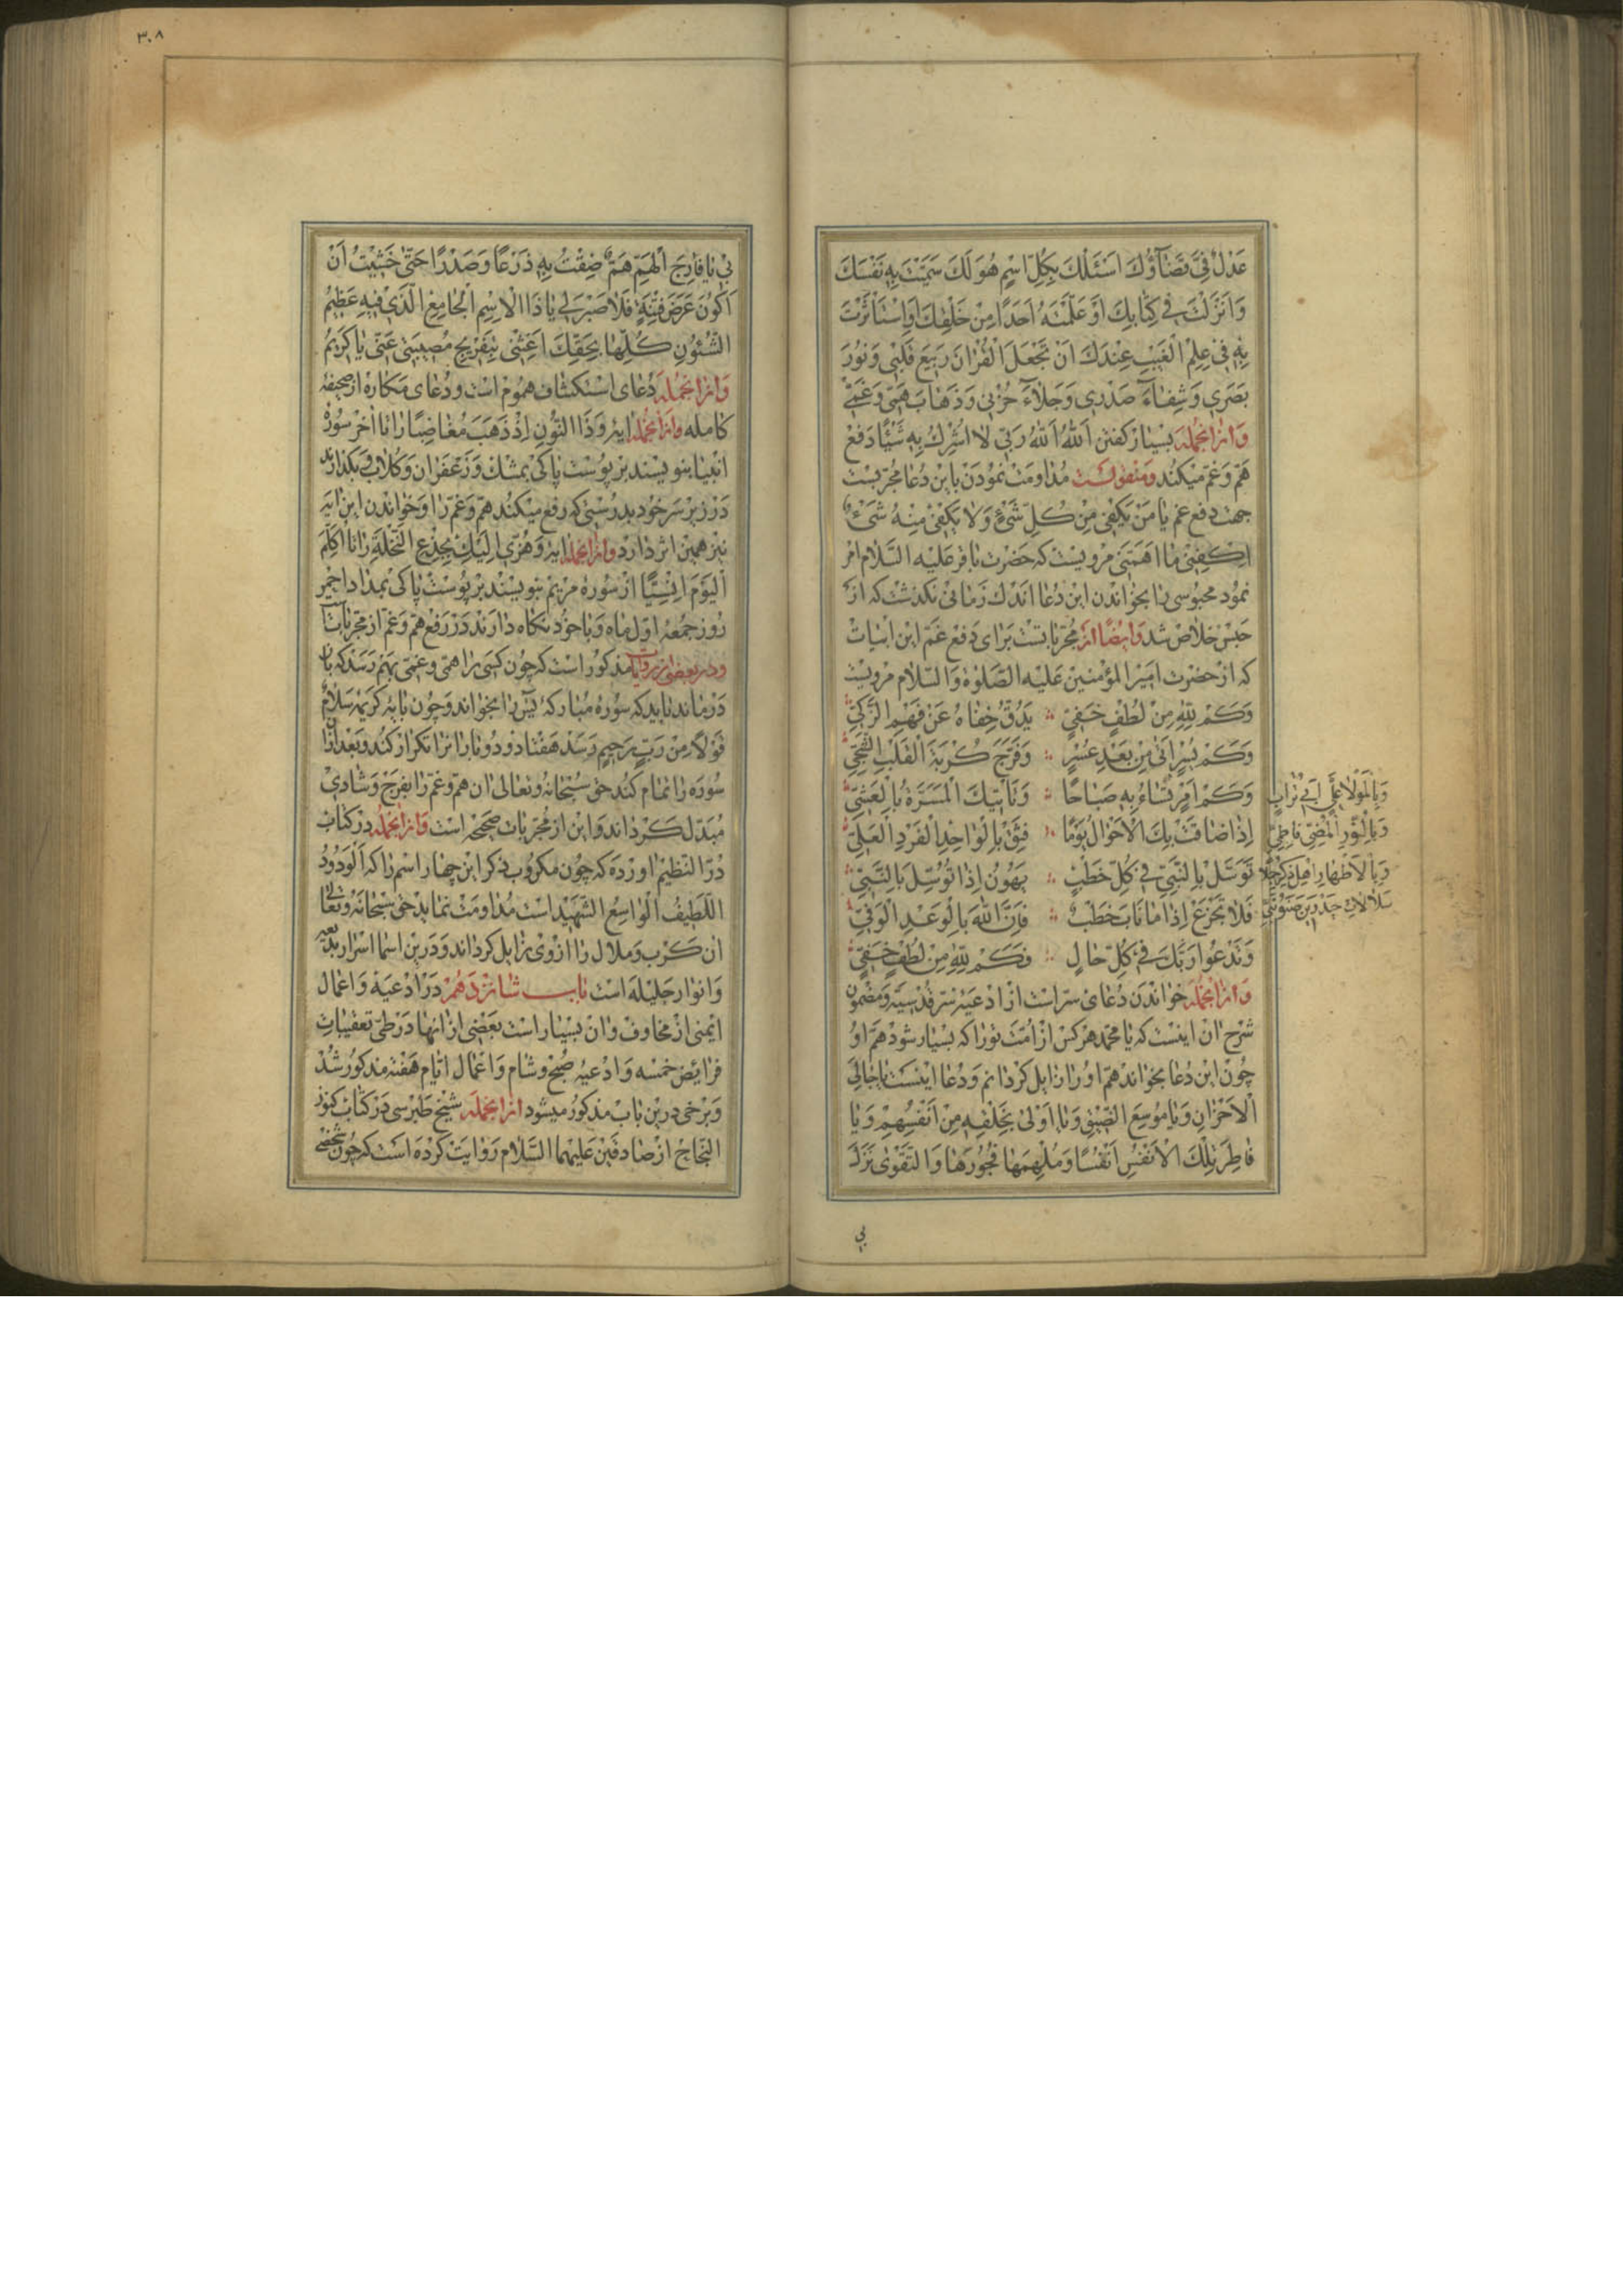 عَدْلٌ فِيَّ قَضَآؤُكَ اَسْئَلُكَ بِكُلِّ اسْمٍ هُوَ لَكَ سَمَّيْتَ بِهِ نَفْسَكَ
وَاَنْزَلْتَ فِي كِتَابِكَ اَوْ عَلَّمْتَهُ اَحَدًا مِنْ خَلْقِكَ اَوِاسْتَأْثَرْتَ
بِهِ فِي عِلْمِ الْغَيْبِ عِنْدَكَ اَنْ تَجْعَلَ الْقُرْانَ رَبِيعَ قَلْبِي وَنُورَ
بَصَرِي وَشِفَآءَ صَدْرِي وَجَلَاءَ حُزْنِي وَذَهَابَ هَمِّي وَغَمِّي
وازانجمله بسیار گفتن اَللهُ اَللهُ رَبِّي لَا اُشْرِكُ بِهِ شَيْئًا دفع
هم و غم میکند ومنقولست مداومت نمودن باین دعا مجربست
جهت دفع غم يَا مَنْ يَكْفِي مِنْ كُلِّ شَيْءٍ وَلَا يَكْفِي مِنْهُ شَيْءٌ
اِكْفِنِي مَا اَهَمَّنِي مرویست که حضرت باقر علیه السلام امر
نمود محبوسی را بخواندن این دعا اندك زمانی نکذشت که از
حبس خلاص شد وایضا از مجرباتست برای دفع غم این ابیات
که از حضرت امیر المؤمنین علیه الصلوة والسلام مرویست
وَكَمْ لِلّٰهِ مِنْ لُطْفٍ خَفِيٍّ ∴ يَدُقُّ خِفَاهُ عَنْ فَهْمِ الزَّكِيِّ
وَكَمْ يُسْرٍ اَتَى مِنْ بَعْدِ عُسْرٍ ∴ وَفَرَّجَ كُرْبَةَ الْقَلْبِ الشَّجِيِّ
وَكَمْ اَمْرٍ تُسَاءُ بِهِ صَبَاحًا ∴ وَتَأْتِيكَ الْمَسَرَّةُ بِالْعَشِيِّ
اِذَا ضَاقَتْ بِكَ الْاَحْوَالُ يَوْمًا ∴ فَثِقْ بِالْوَاحِدِ الْفَرْدِ الْعَلِيِّ
تَوَسَّلْ بِالنَّبِيِّ فِي كُلِّ خَطْبٍ ∴ يَهُونُ اِذَا تُوُسِّلَ بِالنَّبِيِّ
وَبِالْمَوْلَا عَلِيِّ اَبِي تُرَابٍ
وَبِالنُّورِ الْمُضِيِّ فَاطِمِيِّ
وَبِالْاَطْهَارِ اَهْلِ
فَلَا تَجْزَعْ اِذَا مَا نَابَ خَطْبٌ ∴ فَاِنَّ اللهَ بِالْوَعْدِ الْوَفِيِّ
وَتَدْعُوا رَبَّكَ فِي كُلِّ حَالٍ ∴ فَكَمْ لِلّٰهِ مِنْ لُطْفٍ خَفِيٍّ
وازانجمله خواندن دعای سر است از ادعیه سر قدسیه ومضمون
شرح ان اینست که یا محمد هر کس از امت تو را که بسیار شود هم او
چون این دعا بخواند هم او را زایل کردانم و دعا اینست يَا جَالِيَ
الْاَحْزَانِ وَيَا مُوسِعَ الضِّيقِ وَيَا اَوْلَى بِخَلْقِهِ مِنْ اَنْفُسِهِمْ وَيَا
فَاطِرَ تِلْكَ الْاَنْفُسِ اَنْفُسًا وَمُلْهِمَهَا فُجُورَهَا وَالتَّقْوٰى نَزَلَ
بي
٣٠٨
بِي يَا فَارِجَ الْهَمِّ هَمٌّ ضِقْتُ بِهِ ذَرْعًا وَصَدْرًا حَتّٰى خَشِيْتُ اَنْ
اَكُونَ عَرَضَ فِتْنَةٍ فَلَا صَبْرَ لِي يَا ذَا الْاِسْمِ الْجَامِعِ الَّذِي فِيهِ عَظِيمُ
الشُّئُونِ كُلِّهَا بِحَقِّكَ اَغِثْنِي بِتَفْرِيجِ مُصِيبَتِي عَنِّي يَا كَرِيمُ
وازانجمله دعای استکشاف هموم است ودعای مکاره از صحیفه
کامله وازانجمله ایه وَذَا النُّونِ اِذْ ذَهَبَ مُغَاضِبًا را تا اخر سوره
انبیا بنویسند بر پوست پاکی بمشك و زعفران و کلاب و بکذارند
در زیر سر خود بدرستی که رفع میکند هم و غم را و خواندن این ایه
نیز همین اثر دارد وازانجمله ایه وَهُزِّي اِلَيْكِ بِجِذْعِ النَّخْلَةِ را تا اُكَلِّمَ
الْيَوْمَ اِنْسِيًّا از سوره مریم بنویسند بر پوست پاکی بمداد احمر
روز جمعه اول ماه و با خود نکاه دارند در رفع هم و غم از مجرباتست
ودر بعضی از روایات مذکور است که چون کسی را همی و غمی بهم رسد که بان
درماند باید که سوره مبارکه یس را بخواند و چون بایه کریمه سَلَامٌ
قَوْلًا مِنْ رَبٍّ رَحِيمٍ رسد هفتاد و دو بار انرا تکرار کند و بعد ازان
سوره را تمام کند حق سبحانه وتعالی ان هم و غم را بفرج و شادی
مبدل کرداند و این از مجربات صحیحه است وازانجمله در کتاب
در النظیم اورده که چون مکروب ذکر این چهار اسم را که اَلْوَدُودُ
اللَّطِيفُ الْوَاسِعُ الشَّهِيدُ است مداومت نماید حق سبحانه وتعالی
ان کرب و ملال را از وی زایل کرداند و درین اسما اسرار بدیعه
و انوار جلیله است باب شانزدهم در ادعیه و اعمال
ایمنی از مخاوف و ان بسیار است بعضی از انها در طی تعقیبات
فرائض خمسه و ادعیه صبح و شام و اعمال ایام هفته مذکور شد
و برخی درین باب مذکور میشود ازانجمله شیخ طبرسی در کتاب کنوز
النجاح از صادقین علیهما السلام روایت کرده است که چون شخصی